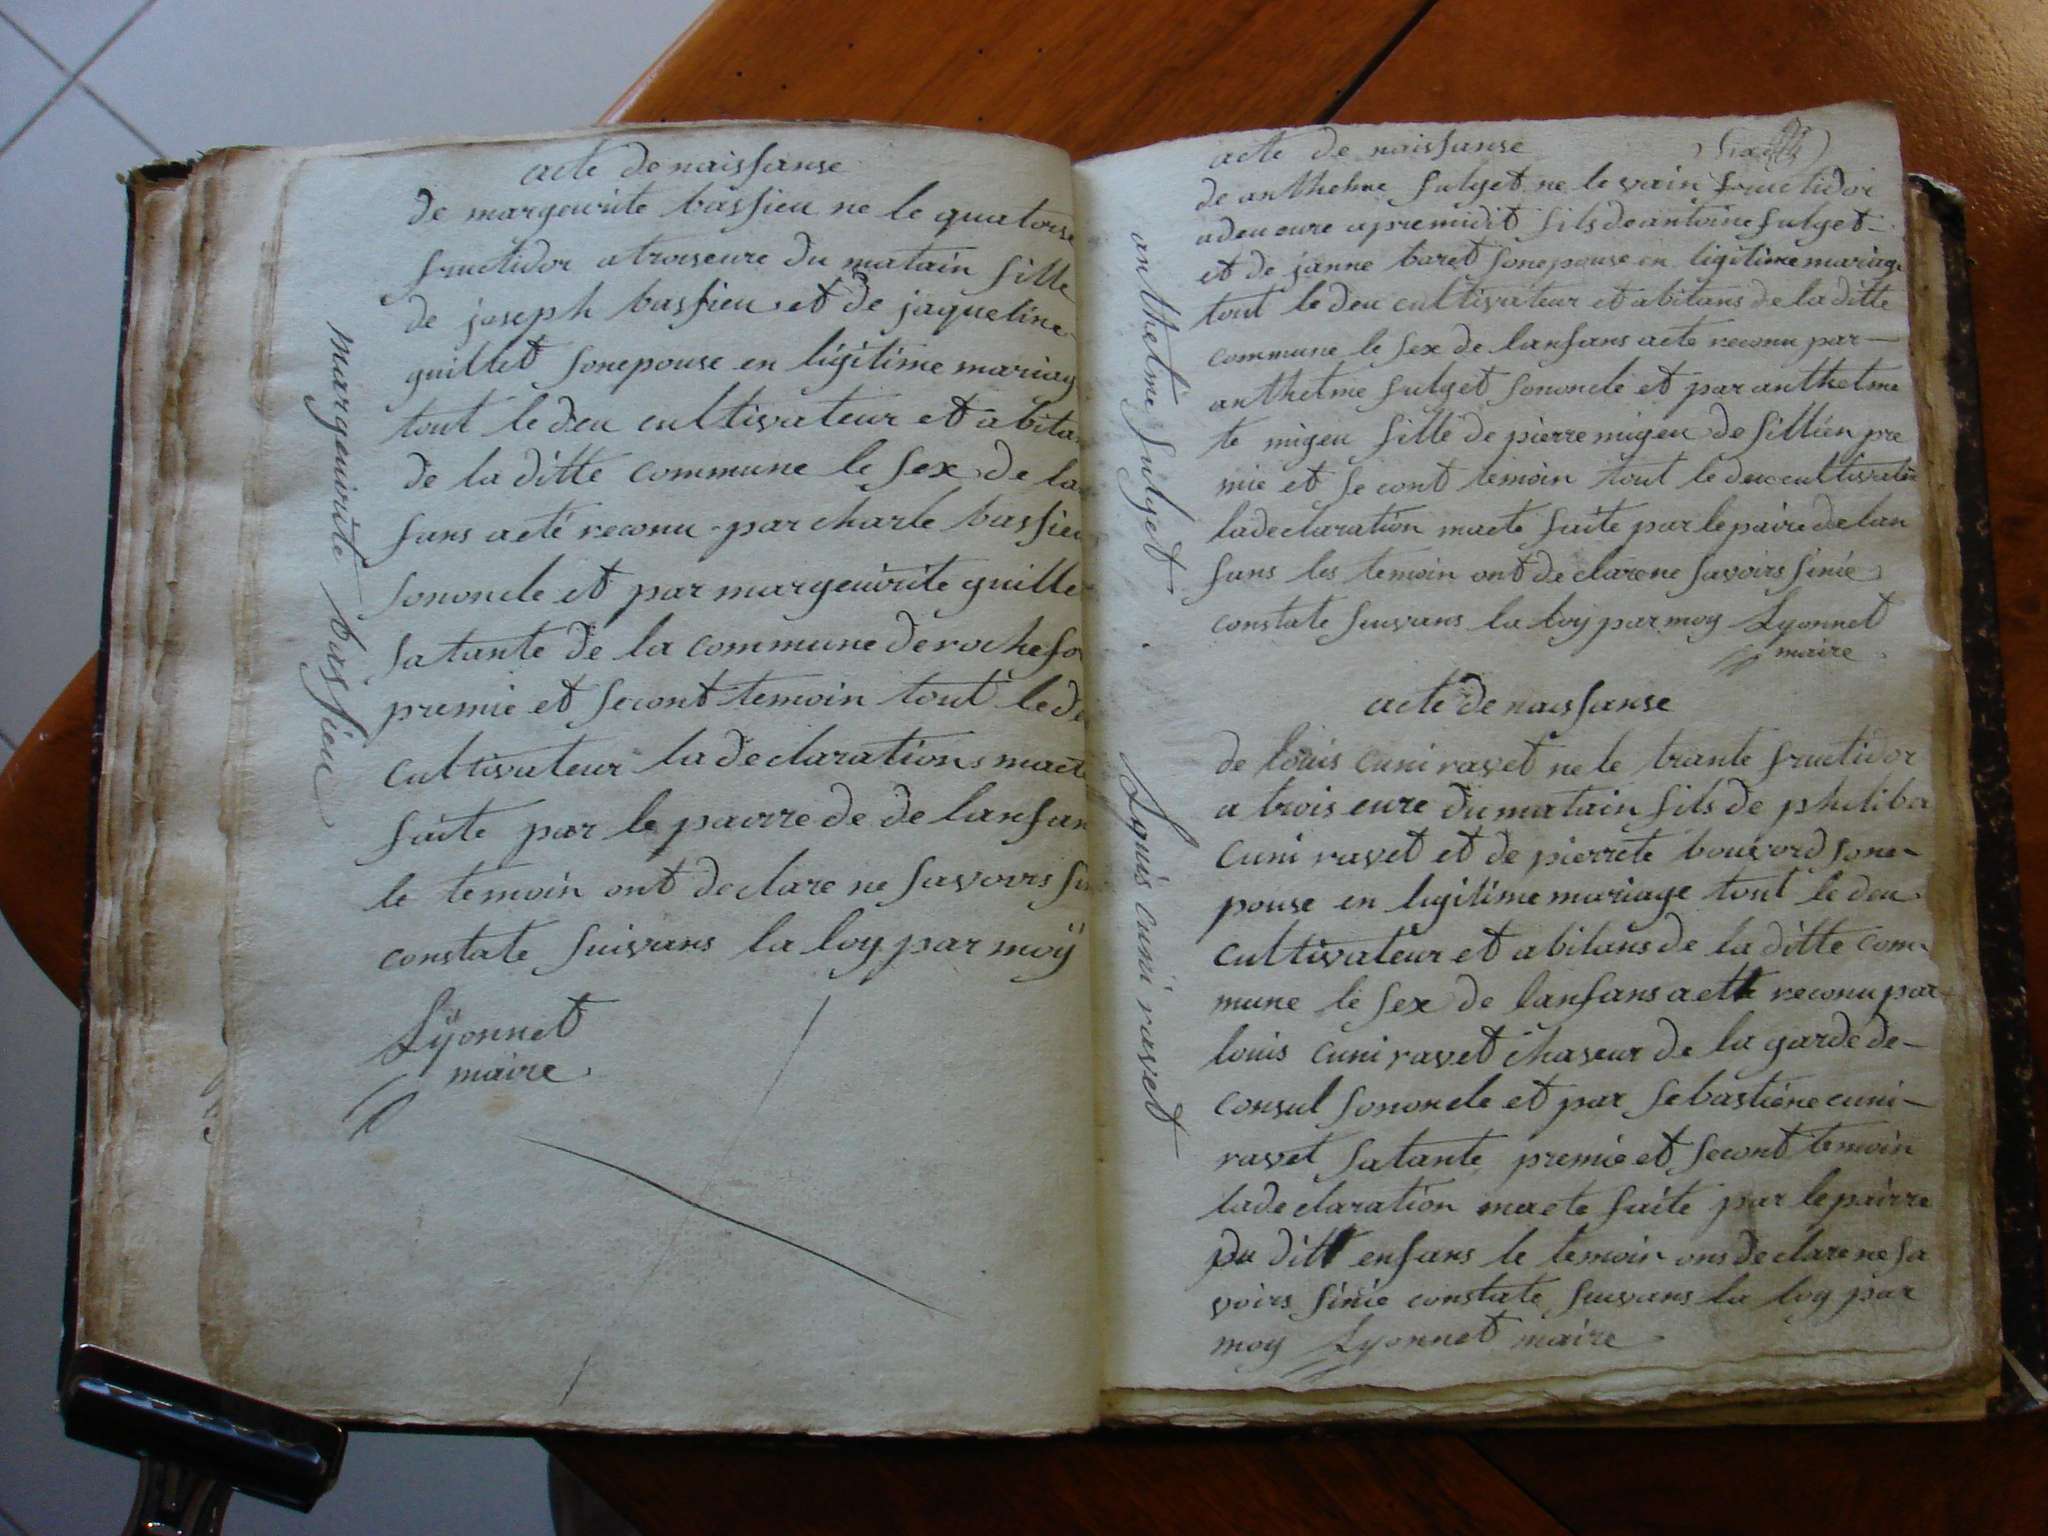 acte de naissanse
de margeuirite bassieu ne le quatorse
fructidor a troiseure du matain fille
de joseph bassieu et de jaqueline
guillet sonepouse en ligitime mariag
tout le deu cultivateur et abitan
de la ditte commune le sex de lan
fans acté reconu par charle bassieu
sononcle et par margeuirite guillet
satante de la commune de rochefo
premie et second temoin tout le de
cultivateur la declarations macte
faite par le pairre de de lanfan
le temoin ont declare ne savoirs
constate suivans la loy par moÿ
Lyonnet
maire
margeuirite bassieu
acte de naissanse
de anthelme fulget ne le vain fructidor
a deu eure apremidit fils de antoine fulget
et de janne baret sonepouse en ligitime mariage
tout le deu cultivateur et abitans de la ditte
commune le sex de lanfans acte reconu par
anthelme fulget sononcle et par anthelme
te migeu fille de pierre migeu de sillien pre
mie et secont temoin tout le deu cultivateu
la declaration macte faite par le paire de lan
fans les temoin ont declare ne savoirs sinie
constate suivans la loy par moy Lyonnet
maire
anthelme fulget
acte de naissanse
de louis cuni ravet ne le trante fructidor
a trois eure du matain fils de philiber
cuni ravet et de pierrete bouvard sone-
pouse enligitime mariage tout le deu
cultivateur et abitans de la ditte com-
mune le sex de lanfans acte reconu par
louis cuni ravet chaseur de la garde de-
consul sononcle et par sebastiene cuni-
ravet satante premie et secont temoin
la declaration macte faite par le pairre
du ditt enfans le temoin ons declare ne sa
voirs sinie constate suivans la loy par
moy Lyonnet maire
Lyuis cuni ravet